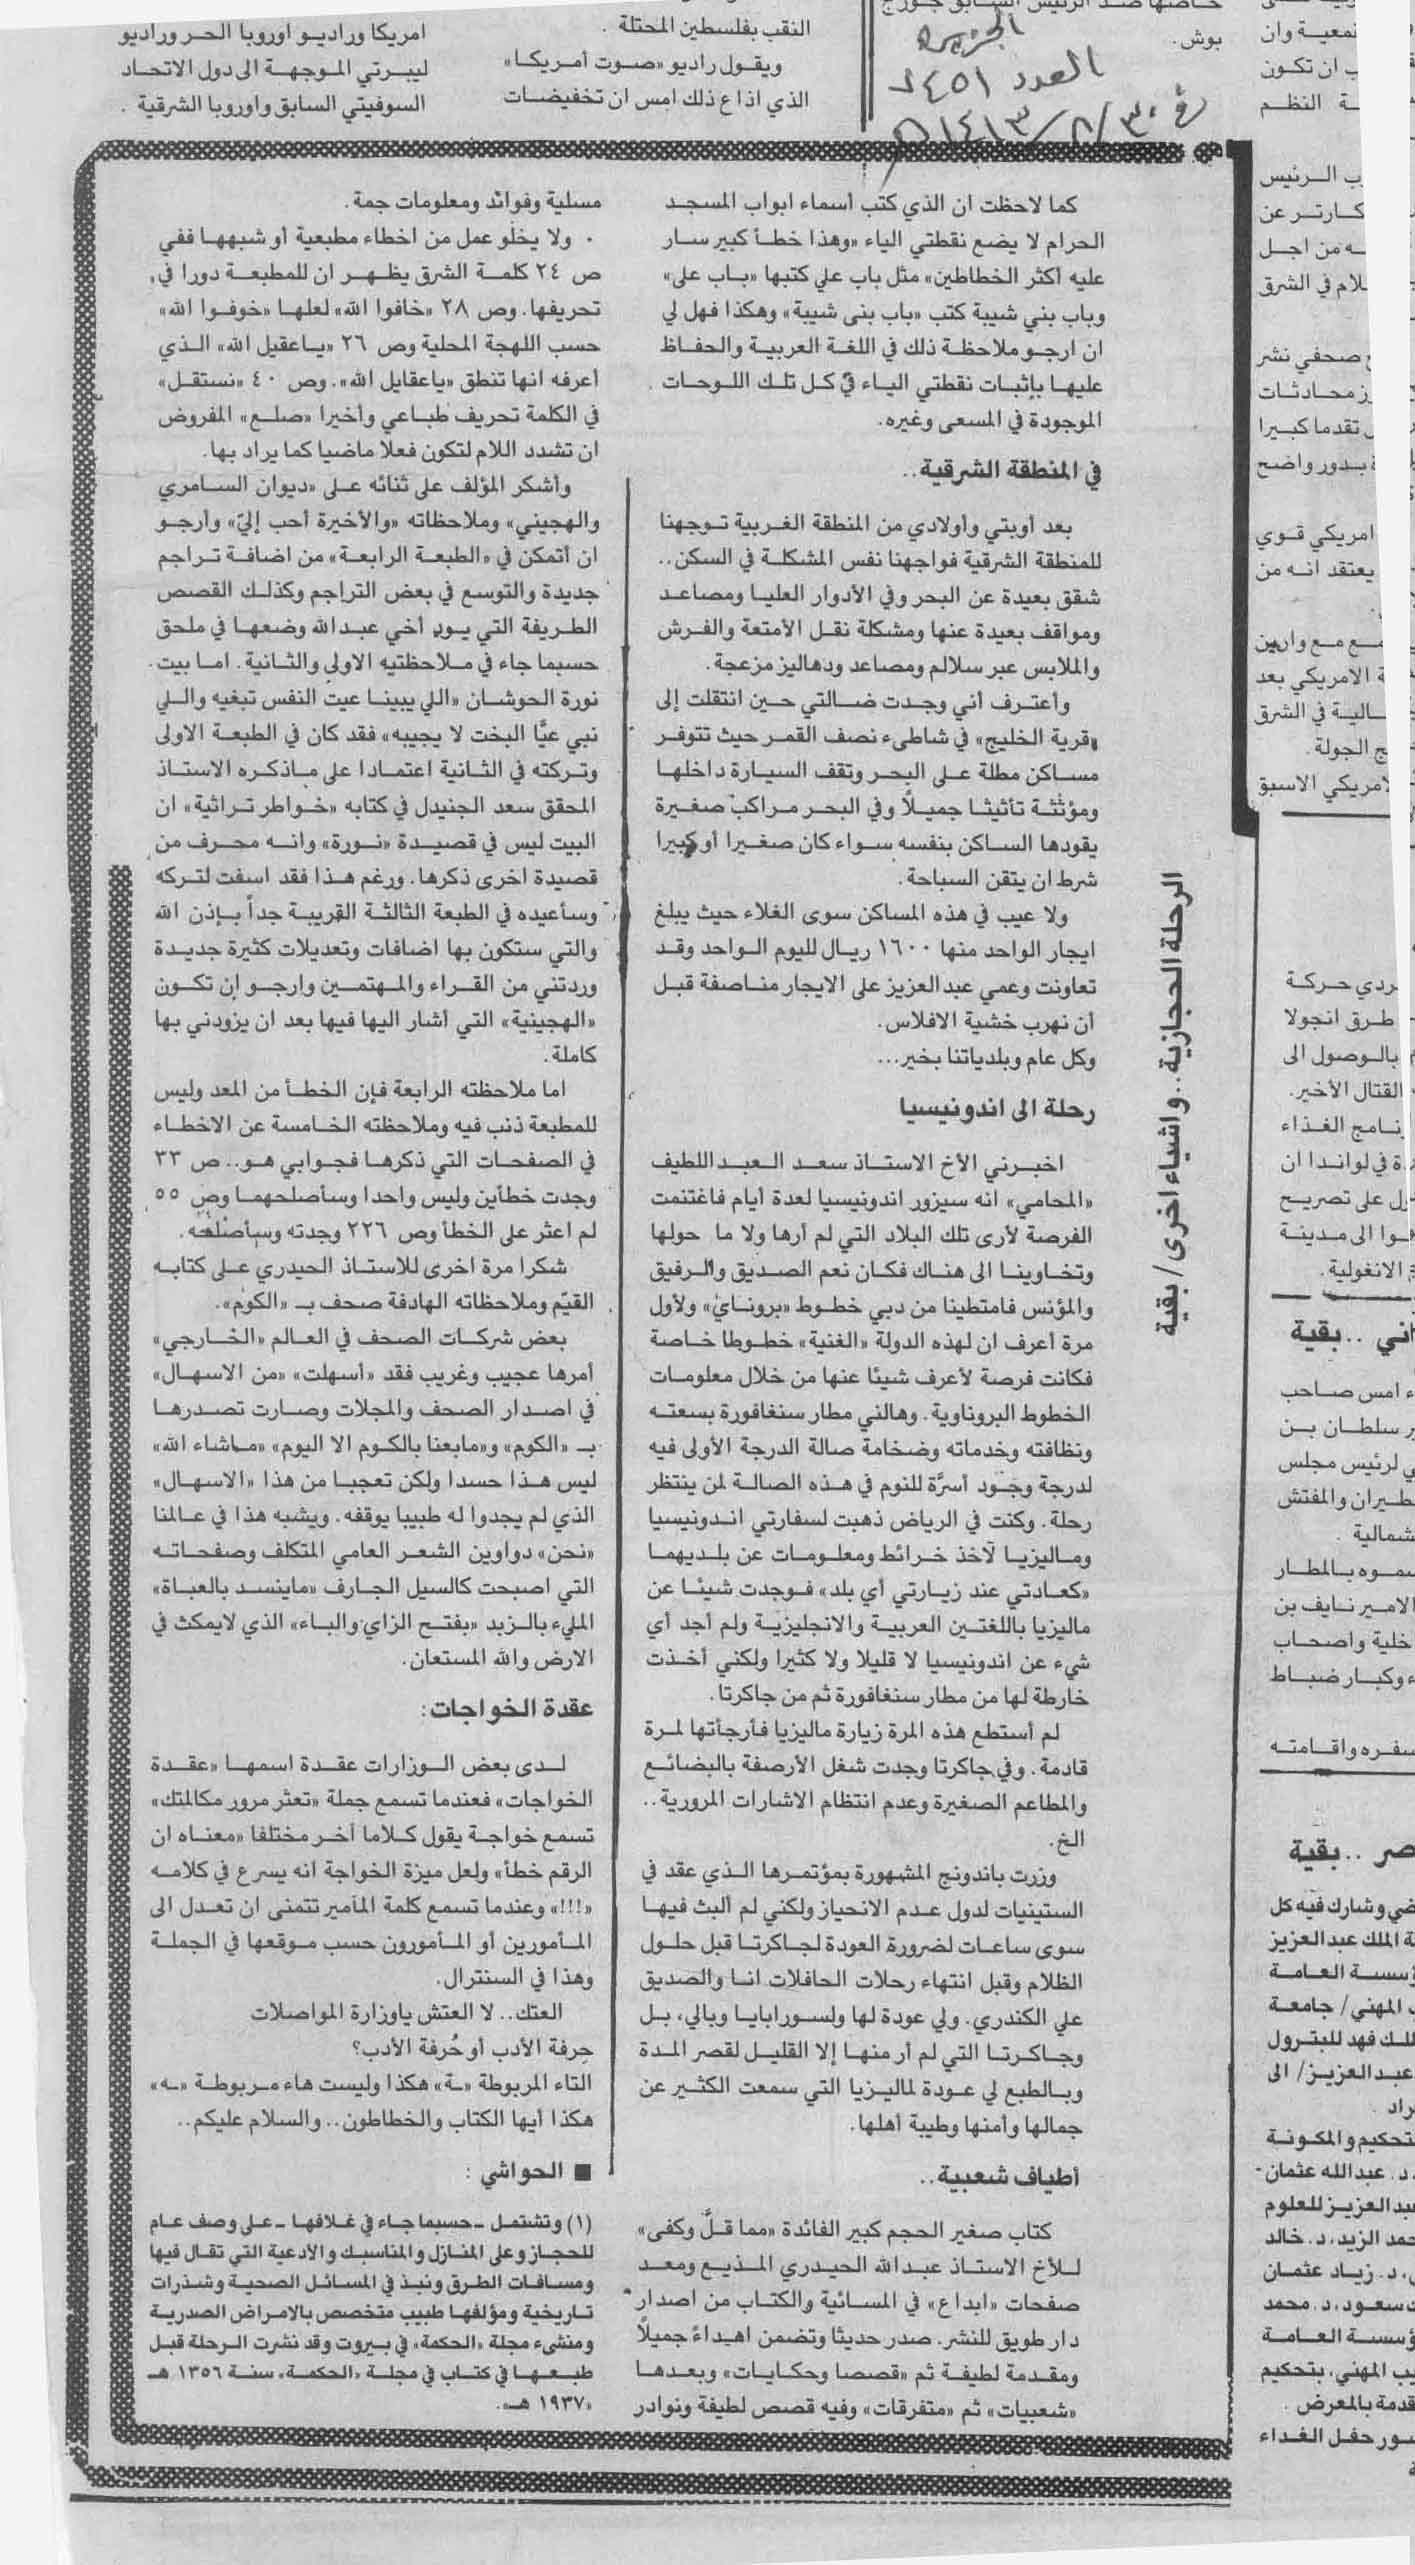 النقب بفلسطين المحتلة .
ويقول راديو «صوت أمريكا»
الذي اذاع ذلك امس ان تخفيضات
امريكا وراديو اوروبا الحر وراديو
ليبرتي الموجهة الى دول الاتحاد
السوفيتي السابق واوروبا الشرقية .
بوش.
الجزيرة
العدد ٧٤٥١
في ٣٠/٨/١٤١٣هـ
الرحلة الحجازية.. واشياء اخرى/ بقية
كما لاحظت ان الذي كتب أسماء ابواب المسجد
الحرام لا يضع نقطتي الياء «وهذا خطأ كبير سار
عليه اكثر الخطاطين» مثل باب علي كتبها «باب على»
وباب بني شيبة كتب «باب بنى شيبة» وهكذا فهل لي
ان ارجو ملاحظة ذلك في اللغة العربية والحفاظ
عليها بإثبات نقطتي الياء في كل تلك اللوحات
الموجودة في المسعى وغيره.
في المنطقة الشرقية..
بعد أوبتي وأولادي من المنطقة الغربية توجهنا
للمنطقة الشرقية فواجهنا نفس المشكلة في السكن..
شقق بعيدة عن البحر وفي الأدوار العليا ومصاعد
ومواقف بعيدة عنها ومشكلة نقل الأمتعة والفرش
والملابس عبر سلالم ومصاعد ودهاليز مزعجة.
وأعترف أني وجدت ضالتي حين انتقلت إلى
«قرية الخليج» في شاطىء نصف القمر حيث تتوفر
مساكن مطلة على البحر وتقف السيارة داخلها
ومؤثثة تأثيثا جميلاً وفي البحر مراكب صغيرة
يقودها الساكن بنفسه سواء كان صغيرا أو كبيرا
شرط ان يتقن السباحة.
ولا عيب في هذه المساكن سوى الغلاء حيث يبلغ
ايجار الواحد منها ١٦٠٠ ريال لليوم الواحد وقد
تعاونت وعمي عبدالعزيز على الايجار مناصفة قبل
أن نهرب خشية الافلاس.
وكل عام وبلدياتنا بخير...
رحلة الى اندونيسيا
اخبرني الأخ الاستاذ سعد العبداللطيف
«المحامي» انه سيزور اندونيسيا لعدة أيام فاغتنمت
الفرصة لأرى تلك البلاد التي لم أرها ولا ما حولها
وتخاوينا الى هناك فكان نعم الصديق والرفيق
والمؤنس فامتطينا من دبي خطوط «بروناي» ولأول
مرة أعرف ان لهذه الدولة «الغنية» خطوطا خاصة
فكانت فرصة لأعرف شيئا عنها من خلال معلومات
الخطوط البروناوية. وهالني مطار سنغافورة بسعته
ونظافته وخدماته وضخامة صالة الدرجة الأولى فيه
لدرجة وجود أسرَّة للنوم في هذه الصالة لمن ينتظر
رحلة. وكنت في الرياض ذهبت لسفارتي اندونيسيا
وماليزيا لآخذ خرائط ومعلومات عن بلديهما
«كعادتي عند زيارتي أي بلد» فوجدت شيئا عن
ماليزيا باللغتين العربية والانجليزية ولم أجد أي
شيء عن اندونيسيا لا قليلا ولا كثيرا ولكني أخذت
خارطة لها من مطار سنغافورة ثم من جاكرتا.
لم أستطع هذه المرة زيارة ماليزيا فأرجأتها لمرة
قادمة. وفي جاكرتا وجدت شغل الأرصفة بالبضائع
والمطاعم الصغيرة وعدم انتظام الاشارات المرورية..
الخ.
وزرت باندونج المشهورة بمؤتمرها الذي عقد في
الستينيات لدول عدم الانحياز ولكني لم ألبث فيها
سوى ساعات لضرورة العودة لجاكرتا قبل حلول
الظلام وقبل انتهاء رحلات الحافلات انا والصديق
علي الكندري. ولي عودة لها ولسورابايا وبالي، بل
وجاكرتا التي لم أر منها إلا القليل لقصر المدة
وبالطبع لي عودة لماليزيا التي سمعت الكثير عن
جمالها وأمنها وطيبة أهلها.
أطياف شعبية..
كتاب صغير الحجم كبير الفائدة «مما قلَّ وكفى»
للأخ الاستاذ عبدالله الحيدري المذيع ومعد
صفحات «ابداع» في المسائية والكتاب من اصدار
دار طويق للنشر. صدر حديثا وتضمن اهداءً جميلاً
ومقدمة لطيفة ثم «قصصا وحكايات» وبعدها
«شعبيات» ثم «متفرقات» وفيه قصص لطيفة ونوادر
مسلية وفوائد ومعلومات جمة.
ولا يخلو عمل من اخطاء مطبعية أو شبهها ففي
ص ٢٤ كلمة الشرق يظهر ان للمطبعة دورا في
تحريفها. وص ٢٨ «خافوا الله» لعلها «خوفوا الله»
حسب اللهجة المحلية وص ٢٦ «ياعقيل الله» الذي
أعرفه انها تنطق «ياعقايل الله». وص ٤٠ «نستقل»
في الكلمة تحريف طباعي وأخيرا «صلع» المفروض
ان تشدد اللام لتكون فعلا ماضيا كما يراد بها.
وأشكر المؤلف على ثنائه على «ديوان السامري
والهجيني» وملاحظاته «والأخيرة أحب إليّ» وأرجو
ان أتمكن في «الطبعة الرابعة» من اضافة تراجم
جديدة والتوسع في بعض التراجم وكذلك القصص
الطريفة التي يود أخي عبدالله وضعها في ملحق
حسبما جاء في ملاحظتيه الاولى والثانية. اما بيت
نورة الحوشان «اللي يبينا عيت النفس تبغيه واللي
نبي عيَّا البخت لا يجيبه» فقد كان في الطبعة الاولى
وتركته في الثانية اعتمادا على ماذكره الاستاذ
المحقق سعد الجنيدل في كتابه «خواطر تراثية» ان
البيت ليس في قصيدة «نورة» وانه محرف من
قصيدة اخرى ذكرها. ورغم هذا فقد اسفت لتركه
وسأعيده في الطبعة الثالثة القريبة جداً بإذن الله
والتي ستكون بها اضافات وتعديلات كثيرة جديدة
وردتني من القراء والمهتمين وارجو إن تكون
«الهجينية» التي أشار اليها فيها بعد ان يزودني بها
كاملة.
اما ملاحظته الرابعة فإن الخطأ من المعد وليس
للمطبعة ذنب فيه وملاحظته الخامسة عن الاخطاء
في الصفحات التي ذكرها فجوابي هو.. ص ٣٣
وجدت خطأين وليس واحدا وسأصلحهما وص ٥٥
لم اعثر على الخطأ وص ٢٢٦ وجدته وسأصلحه.
شكرا مرة اخرى للاستاذ الحيدري على كتابه
القيّم وملاحظاته الهادفة صحف بـ «الكوم».
بعض شركات الصحف في العالم «الخارجي»
أمرها عجيب وغريب فقد «أسهلت» «من الاسهال»
في اصدار الصحف والمجلات وصارت تصدرها
بـ «الكوم» و«مابعنا بالكوم الا اليوم» «ماشاء الله»
ليس هذا حسدا ولكن تعجبا من هذا «الاسهال»
الذي لم يجدوا له طبيبا يوقفه. ويشبه هذا في عالمنا
«نحن» دواوين الشعر العامي المتكلف وصفحاته
التي اصبحت كالسيل الجارف «ماينسد بالعباة»
المليء بالزبد «بفتح الزاي والباء» الذي لايمكث في
الارض والله المستعان.
عقدة الخواجات:
لدى بعض الوزارات عقدة اسمها «عقدة
الخواجات» فعندما تسمع جملة «تعثر مرور مكالمتك»
تسمع خواجة يقول كلاما أخر مختلفا «معناه ان
الرقم خطأ» ولعل ميزة الخواجة انه يسرع في كلامه
«!!!» وعندما تسمع كلمة المآمير تتمنى ان تعدل الى
المأمورين أو المأمورون حسب موقعها في الجملة
وهذا في السنترال.
العتك.. لا العتش ياوزارة المواصلات
حِرفة الأدب أو حُرفة الأدب؟
التاء المربوطة «ـة» هكذا وليست هاء مربوطة «ـه»
هكذا أيها الكتاب والخطاطون.. والسلام عليكم..
■ الحواشي :
(١) وتشتمل ـ حسبما جاء في غلافها ـ على وصف عام
للحجاز وعلى المنازل والمناسك والأدعية التي تقال فيها
ومسافات الطرق ونبذ في المسائل الصحية وشذرات
تاريخية ومؤلفها طبيب متخصص بالامراض الصدرية
ومنشىء مجلة «الحكمة» في بيروت وقد نشرت الرحلة قبل
طبعها في كتاب في مجلة «الحكمة» سنة ١٣٥٦ هـ
«١٩٣٧ هـ».